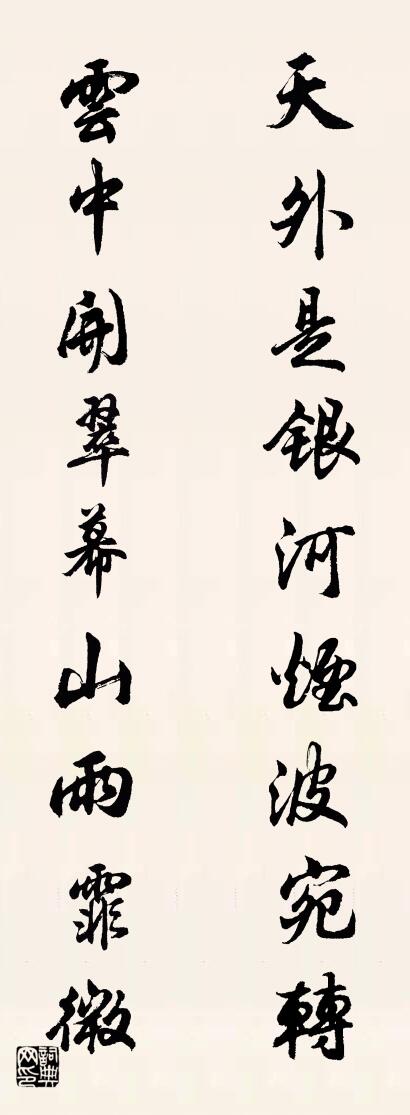 天外是银河煙波宛轉
雲中開翠幕山雨霏微
詞典网印